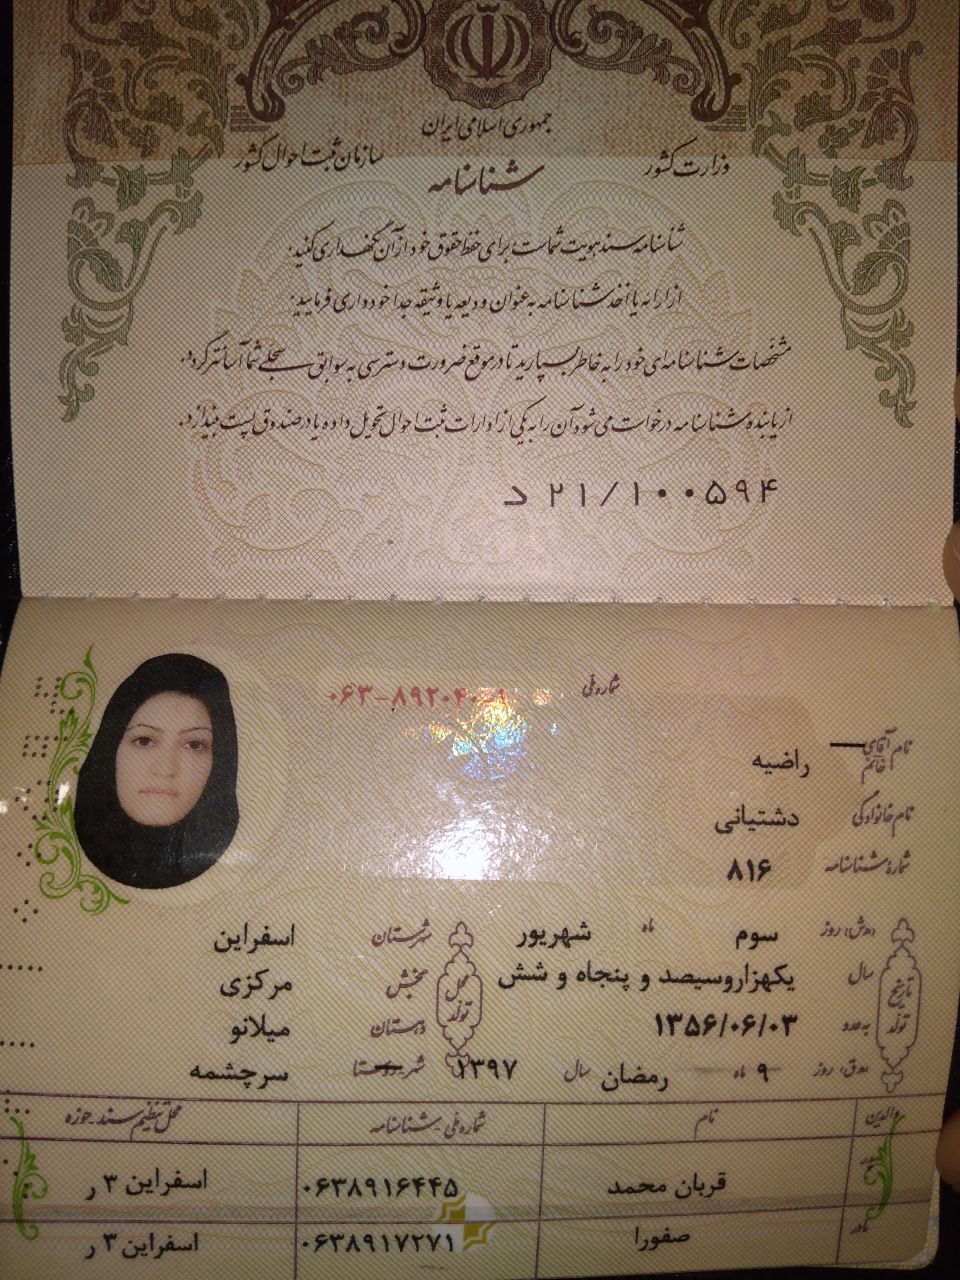 جمهوری اسلامی ایران
وزارت کشور
سازمان ثبت احوال کشور
شناسنامه
شناسنامه سند هویت شماست برای حفظ حقوق خود از آن نگهداری کنید.
از ارائه یا اخذ شناسنامه به عنوان ودیعه یا وثیقه جدا خودداری فرمایید.
مشخصات شناسنامه‌ای خود را به خاطر بسپارید تا در موقع ضرورت دسترسی به سوابق سجلی شما آسانتر گردد.
از یابنده شناسنامه درخواست می‌شود آن را به یکی از ادارات ثبت احوال تحویل داده یا در صندوق پست بیندازد.
د ۲۱/۱۰۰۵۹۴
شماره ملی
نام آقای خانم راضیه
نام خانوادگی دشتیانی
شماره شناسنامه ۸۱۶
تاریخ تولد
(ه.ش) روز سوم ماه شهریور
سال یکهزاروسیصد و پنجاه و شش
به عدد ۱۳۵۶/۰۶/۰۳
(ه.ق) روز ۹ ماه رمضان سال ۱۳۹۷
محل تولد
شهرستان اسفراین
بخش مرکزی
دهستان میلانو
شهر روستا سرچشمه
والدین نام شماره ملی شناسنامه محل تنظیم سند حوزه
پدر قربان محمد ۰۶۳۸۹۱۶۴۴۵ اسفراین ۳ ر
مادر صفورا ۰۶۳۸۹۱۷۲۷۱ اسفراین ۳ ر